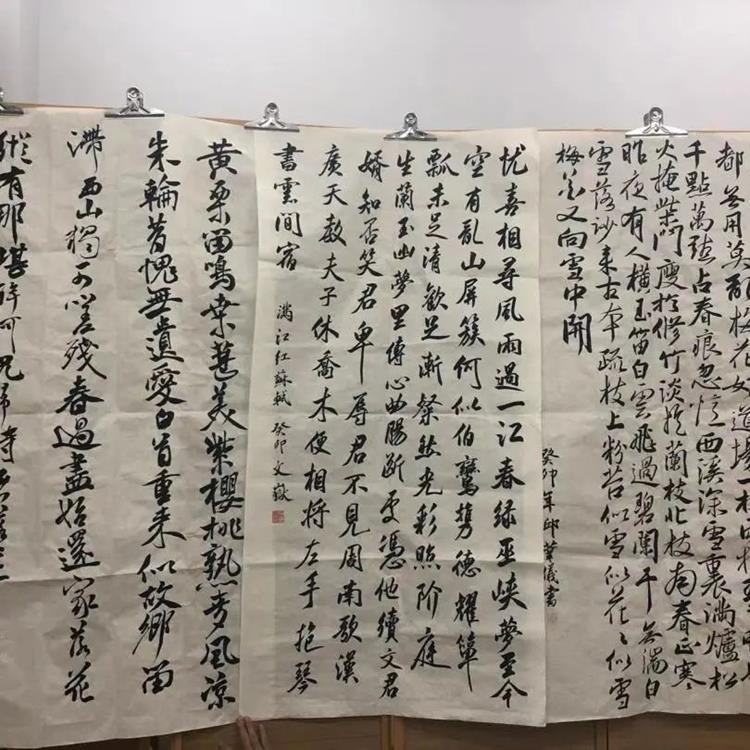 都無用莫
千點萬點占春痕忽憶西溪深雪裏滿爐松
火掩柴門瘦於修竹淡於蘭枝北枝南春正寒
昨夜有人橫玉笛白雲飛過碧闌干無端白
雪落沙來古本疏枝上粉苔似雪似花花似雪
梅花又向雪中開
癸卯年邱儀書
忧喜相尋風雨過一江春綠巫峽夢至今
空有亂山屏簇何似伯鸞携德耀簞
瓢未足清歡足漸粲然光彩照阶庭
生蘭玉幽夢里傳心曲腸斷憑他續文君
婿知否笑君卑辱君不見周南歌漢
廣天教夫子休喬木便相將左手抱琴
書雲間宿
滿江红蘇軾癸卯文嶽
黄栗留鳴桒葚美紫櫻桃熟麥風涼
朱輪昔愧無遺愛白首重來似故鄉留
滯西山獨可嗟残春過盡始還家落花
縱有那堪醉何況歸時無落